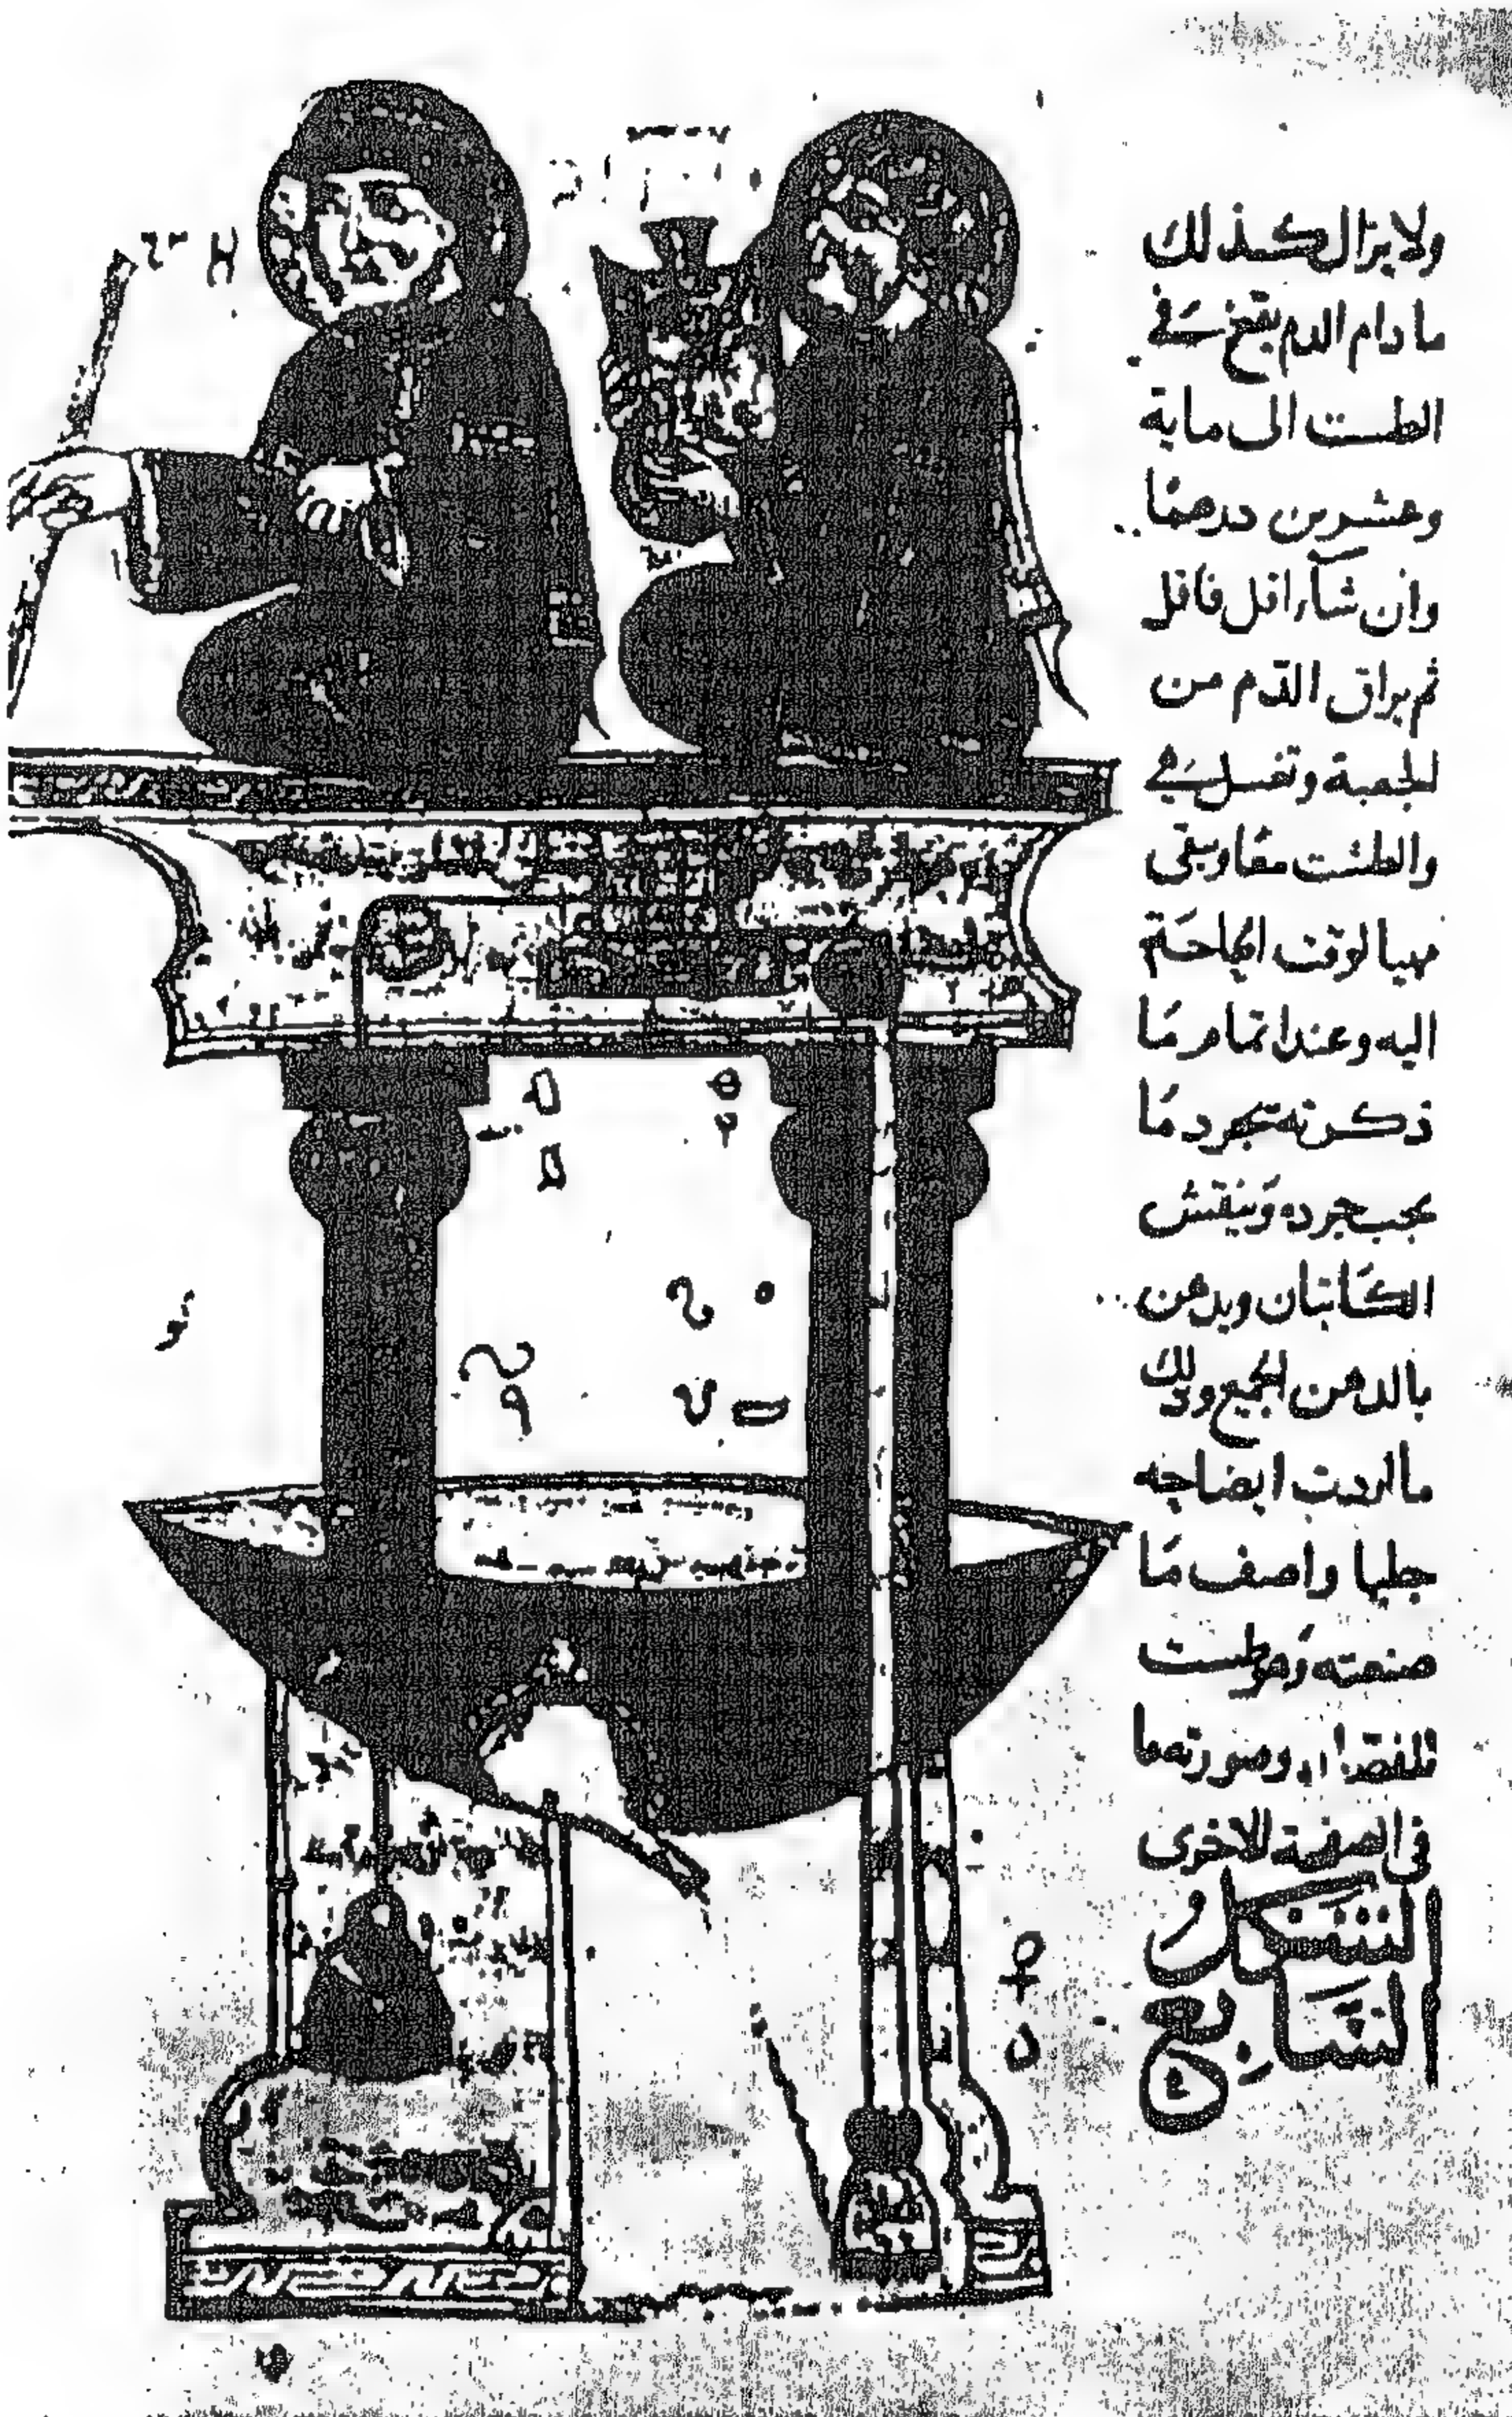 ولا يزال كذلك
ما دام الدم يقع في
الطست الى ماية
وعشرين درهمًا
وان شآء اقل فاقل
ثم يراق الدم من
الجعبة وتغسل هي
والطشت معًا ويبقى
مهيا لوقت الحاجة
اليه وعند اتمام ما
ذكرته تجرد ما
يجب جرده وينقش
الكاتبان ويدهن
بالدهن الجميع وذلك
ما اردت ايضاحه
جليا واصف ما
صنعته وهو طست
للفصّاد وصورته ما
في الصفحة الاخرى
الشكل
السابع